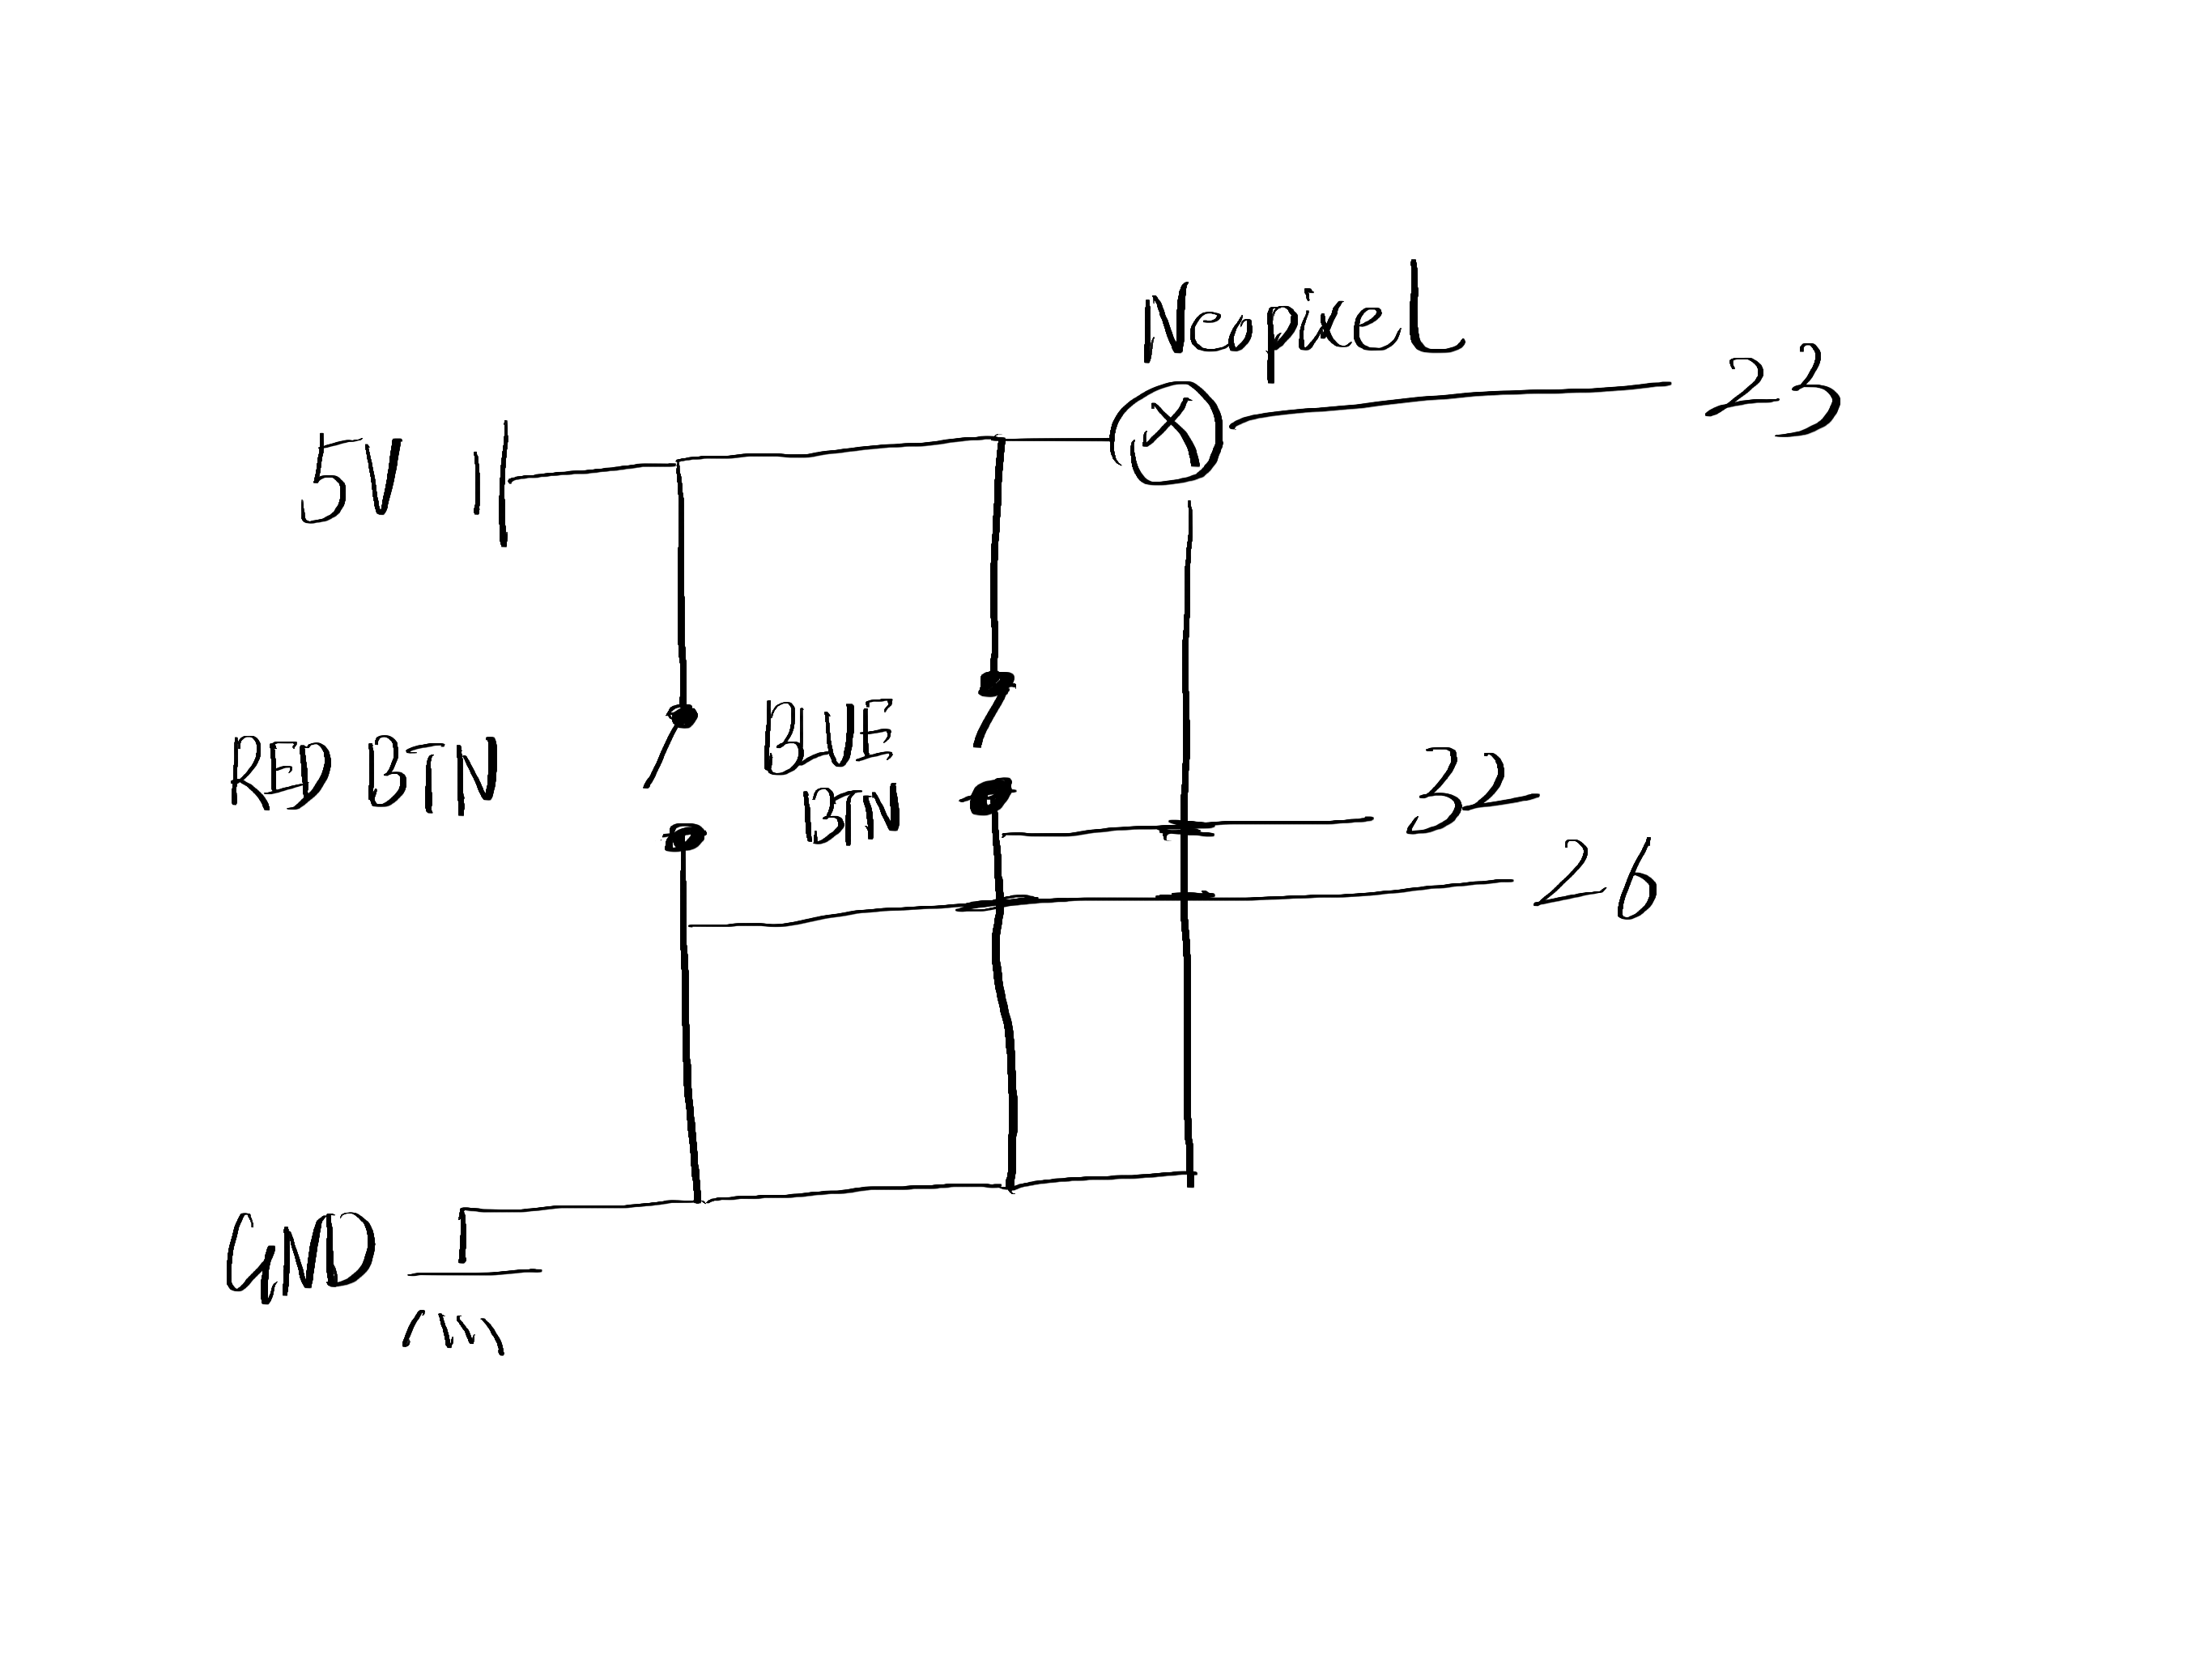 Neopixel
23
5V
RED BTN
BLUE
BTN
32
26
GND